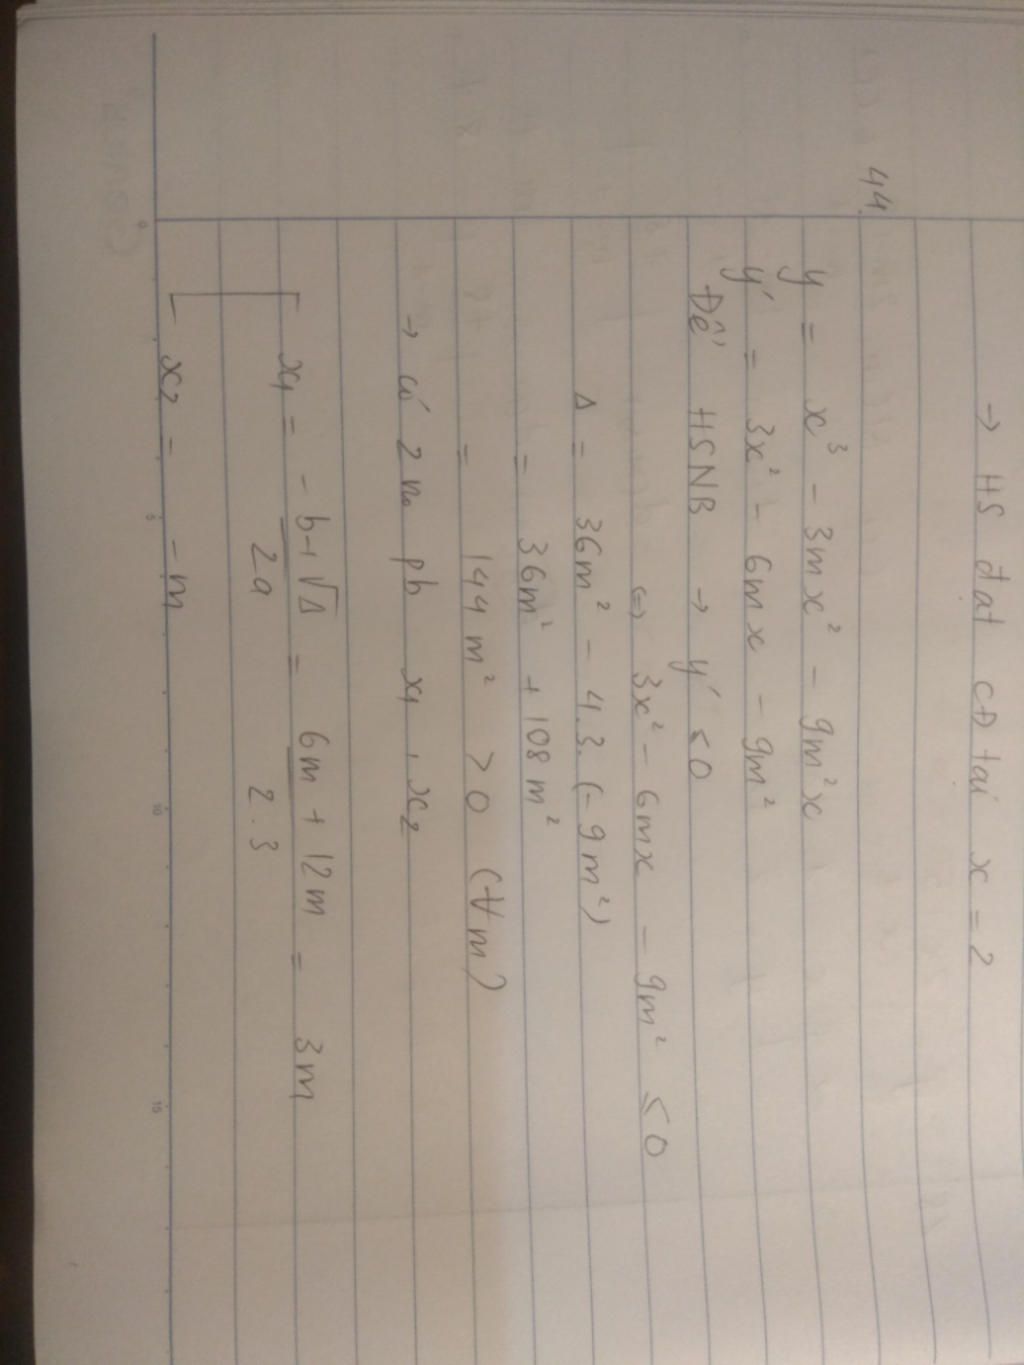 → HS đạt CĐ tại x = 2
44.
y = x³ - 3mx² - 9m²x
y' = 3x² - 6mx - 9m²
Để HSNB → y' ≤ 0
⇔ 3x² - 6mx - 9m² ≤ 0
Δ = 36m² - 4.3.(-9m²)
= 36m² + 108m²
= 144m² > 0 (∀m)
→ có 2 no pb x₁, x₂
x₁ = (-b+√Δ)/2a = (6m + 12m)/2.3 = 3m
x₂ = -m
0 5 10 15